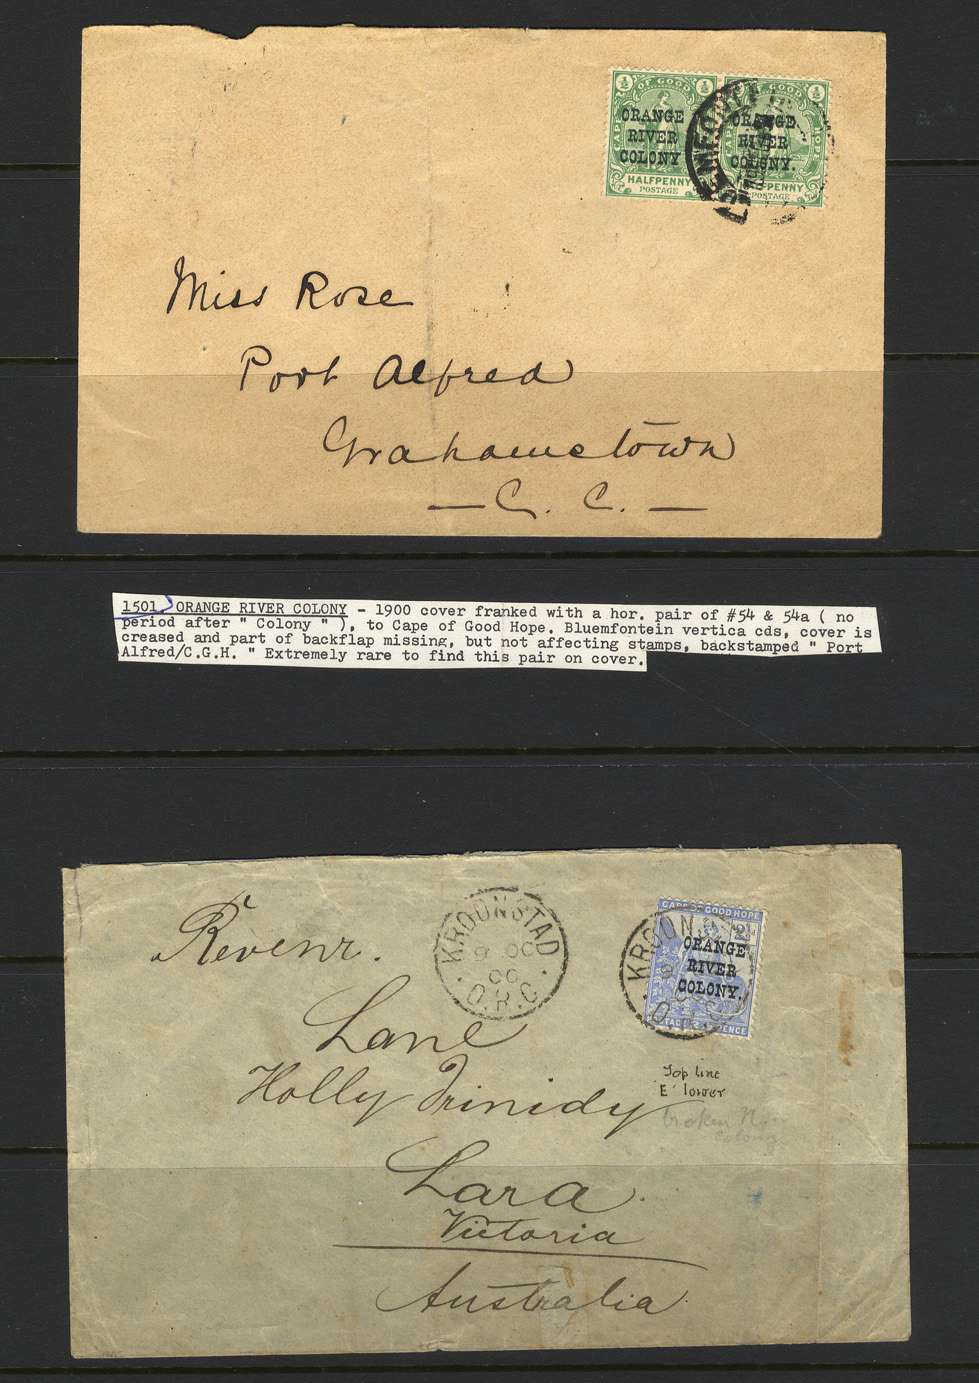 ½ OF GOOD ½ OF GOOD ½
CAPE HOPE
ORANGE RIVER COLONY
ORANGE RIVER COLONY.
HALFPENNY PENNY
POSTAGE POSTAGE
Miss Rose
Port Alfred
Grahamstown
— C. C. —
1501. ORANGE RIVER COLONY - 1900 cover franked with a hor. pair of #54 & 54a ( no
period after " Colony " ), to Cape of Good Hope. Bluemfontein vertica cds, cover is
creased and part of backflap missing, but not affecting stamps, backstamped " Port
Alfred/C.G.H. " Extremely rare to find this pair on cover.
KROONSTAD
9 OC
00
O.R.C
CAPE OF GOOD HOPE
KROONS
2½d
ORANGE
RIVER
COLONY.
9
POSTAGE PENCE
Revenr.
Lane
Holly Trinidy
Lara.
Victoria
Australia.
Top line
'E' lower
broken
colony